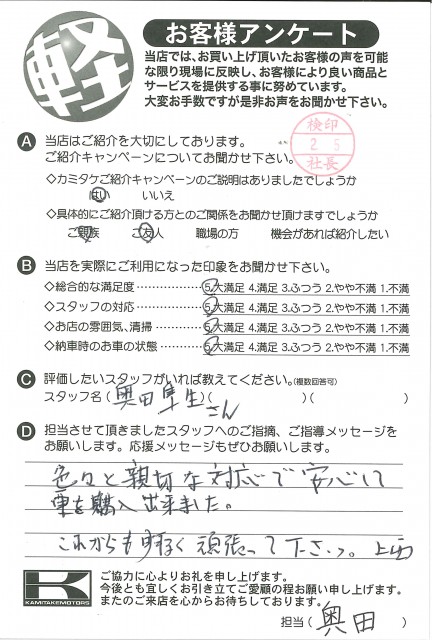 軽
お客様アンケート
当店では、お買い上げ頂いたお客様の声を可能
な限り現場に反映し、お客様により良い商品と
サービスを提供する事に努めています。
大変お手数ですが是非お声をお聞かせ下さい。
検印
25
社長
A 当店はご紹介を大切にしております。
ご紹介キャンペーンについてお聞かせ下さい。
◇カミタケご紹介キャンペーンのご説明はありましたでしょうか
はい いいえ
◇具体的にご紹介頂ける方とのご関係をお聞かせ頂けますでしょうか
ご親族 ご友人 職場の方 機会があれば紹介したい
B 当店を実際にご利用になった印象をお聞かせ下さい。
◇総合的な満足度 ………… 5.大満足 4.満足 3.ふつう 2.やや不満 1.不満
◇スタッフの対応 ………… 5.大満足 4.満足 3.ふつう 2.やや不満 1.不満
◇お店の雰囲気、清掃 …… 5.大満足 4.満足 3.ふつう 2.やや不満 1.不満
◇納車時のお車の状態 …… 5.大満足 4.満足 3.ふつう 2.やや不満 1.不満
C 評価したいスタッフがいれば教えてください。(複数回答可)
スタッフ名(奥田 生さん)( )( )
D 担当させて頂きましたスタッフへのご指摘、ご指導メッセージを
お願いします。応援メッセージもぜひお願いします。
色々と親切な対応で安心して
車を購入出来ました。
これからも明るく頑張って下さい。
K
KAMITAKEMOTORS
ご協力に心よりお礼を申し上げます。
今後とも宜しくお引き立てご愛顧の程お願い申し上げます。
またのご来店を心からお待ちしております。
担当(奥田)